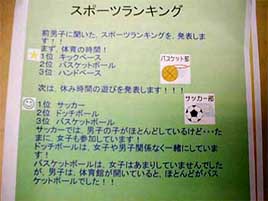 スポーツランキング
前男子に聞いた、スポーツランキングを、発表しま
す！！
まず、体育の時間！
1位 キックベース
2位 バスケットボール
3位 ハンドベース
バスケット部
次は、休み時間の遊びを発表します！！！！
1位 サッカー
2位 ドッチボール
3位 バスケットボール
サッカー部
サッカーでは、男子の子がほとんどしているけど・・・た
まに、女子も参加しています！
ドッチボールは、女子や男子関係なく一緒にしていま
す！
バスケットボールは、女子はあまりしていませんでした
が、男子は、体育館が開いていると、ほとんどがバス
ケットボールでした！！